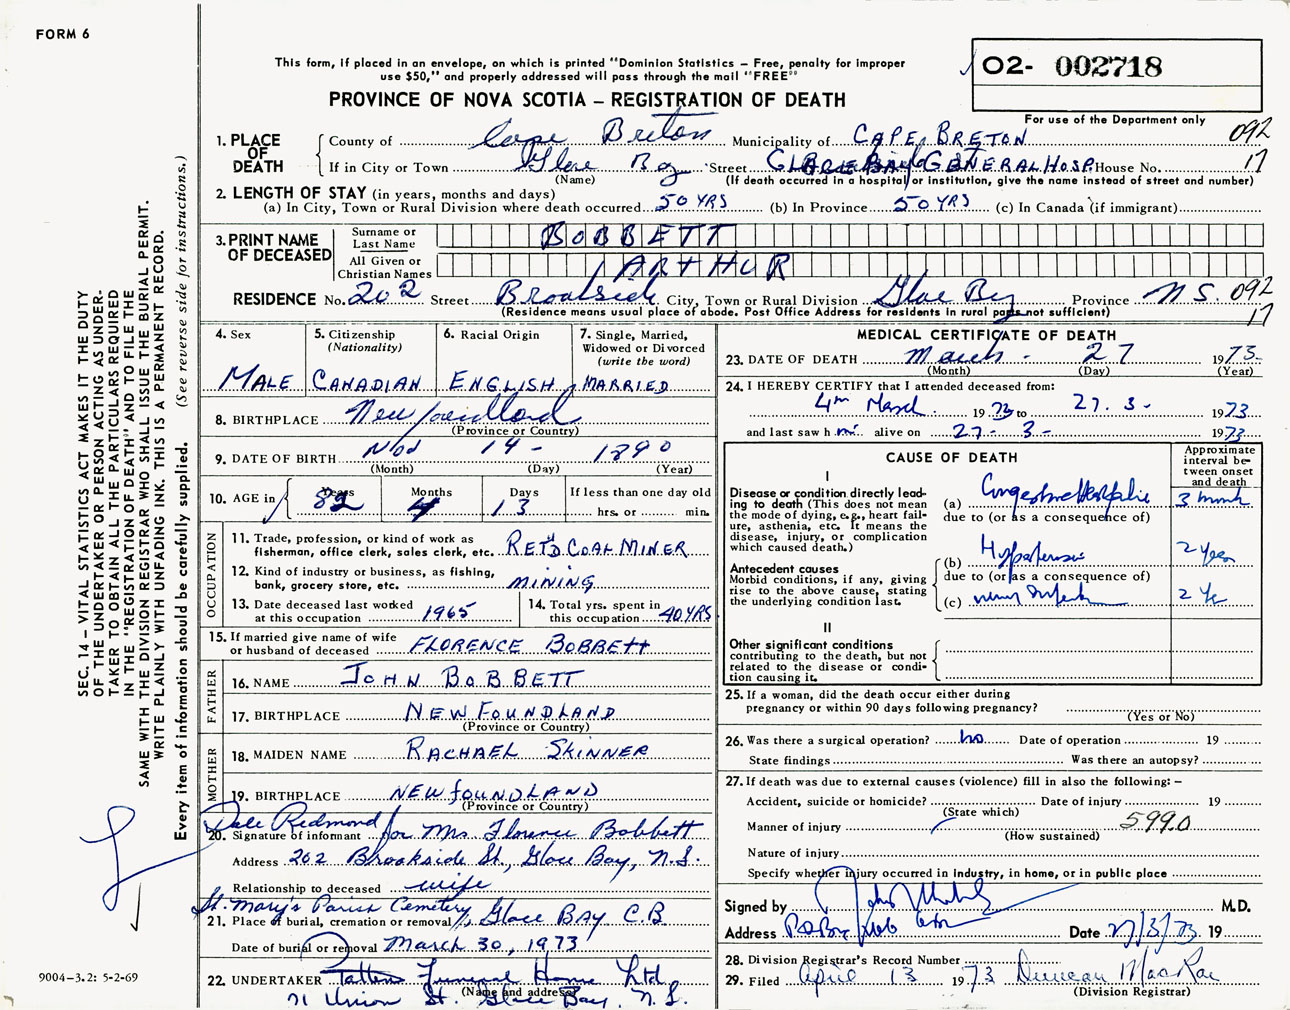 FORM 6
This form, if placed in an envelope, on which is printed "Dominion Statistics – Free, penalty for improper
use $50," and properly addressed will pass through the mail "FREE"
PROVINCE OF NOVA SCOTIA – REGISTRATION OF DEATH
O2- 002718
For use of the Department only
1. PLACE OF DEATH County of Cape Breton Municipality of CAPE BRETON 092
If in City or Town Glace Bay Street GLACE BAY GENERAL HOSP. House No. 17
(Name) (If death occurred in a hospital or institution, give the name instead of street and number)
2. LENGTH OF STAY (in years, months and days)
(a) In City, Town or Rural Division where death occurred 50 YRS (b) In Province 50 YRS (c) In Canada (if immigrant)
3. PRINT NAME OF DECEASED Surname or Last Name BOBBETT
All Given or Christian Names ARTHUR
RESIDENCE No. 202 Street Brookside City, Town or Rural Division Glace Bay Province N.S. 092
(Residence means usual place of abode. Post Office Address for residents in rural parts not sufficient) 17
4. Sex MALE
5. Citizenship (Nationality) CANADIAN
6. Racial Origin ENGLISH
7. Single, Married, Widowed or Divorced (write the word) MARRIED
8. BIRTHPLACE Newfoundland
(Province or Country)
9. DATE OF BIRTH Nov 14 - 1890
(Month) (Day) (Year)
10. AGE in Years 82 Months 4 Days 13 If less than one day old
hrs. or min.
OCCUPATION
11. Trade, profession, or kind of work as
fisherman, office clerk, sales clerk, etc. RET'D COAL MINER
12. Kind of industry or business, as fishing,
bank, grocery store, etc. MINING
13. Date deceased last worked
at this occupation 1965
14. Total yrs. spent in
this occupation 40 YRS
15. If married give name of wife
or husband of deceased FLORENCE BOBBETT
FATHER
16. NAME JOHN BOBBETT
17. BIRTHPLACE NEWFOUNDLAND
(Province or Country)
MOTHER
18. MAIDEN NAME RACHAEL SKINNER
19. BIRTHPLACE NEWFOUNDLAND
(Province or Country)
Dale Redmond
20. Signature of informant for Mrs Florence Bobbett
Address 202 Brookside St., Glace Bay, N.S.
Relationship to deceased wife
St. Mary's Parish Cemetery
21. Place of burial, cremation or removal Glace BAY C.B.
Date of burial or removal March 30, 1973
22. UNDERTAKER Patten Funeral Home Ltd.
(Name and address)
71 Union St. Glace Bay, N.S.
MEDICAL CERTIFICATE OF DEATH
23. DATE OF DEATH March - 27 1973
(Month) (Day) (Year)
24. I HEREBY CERTIFY that I attended deceased from:
4th March 1973 to 27. 3 - 1973
and last saw him alive on 27 - 3 - 1973
CAUSE OF DEATH
Approximate interval between onset and death
I
Disease or condition directly lead-
ing to death (This does not mean
the mode of dying, e.g., heart fail-
ure, asthenia, etc. It means the
disease, injury, or complication
which caused death.)
(a) Congestive 3
due to (or as a consequence of)
Antecedent causes
Morbid conditions, if any, giving
rise to the above cause, stating
the underlying condition last.
(b) Hypertension 2 years
due to (or as a consequence of)
(c) 2 yr
II
Other significant conditions
contributing to the death, but not
related to the disease or condi-
tion causing it.
25. If a woman, did the death occur either during
pregnancy or within 90 days following pregnancy?
(Yes or No)
26. Was there a surgical operation? no Date of operation 19
State findings Was there an autopsy?
27. If death was due to external causes (violence) fill in also the following: –
Accident, suicide or homicide? Date of injury 19
(State which)
Manner of injury 599.0
(How sustained)
Nature of injury
Specify whether injury occurred in industry, in home, or in public place
Signed by M.D.
Address Date 27/3/73 19
28. Division Registrar's Record Number
29. Filed April 13 1973 Duncan MacRae
(Division Registrar)
SEC. 14 – VITAL STATISTICS ACT MAKES IT THE DUTY
OF THE UNDERTAKER OR PERSON ACTING AS UNDER-
TAKER TO OBTAIN ALL THE PARTICULARS REQUIRED
IN THE "REGISTRATION OF DEATH" AND TO FILE THE
SAME WITH THE DIVISION REGISTRAR WHO SHALL ISSUE THE BURIAL PERMIT.
WRITE PLAINLY WITH UNFADING INK. THIS IS A PERMANENT RECORD.
Every item of information should be carefully supplied. (See reverse side for instructions.)
9004-3.2: 5-2-69